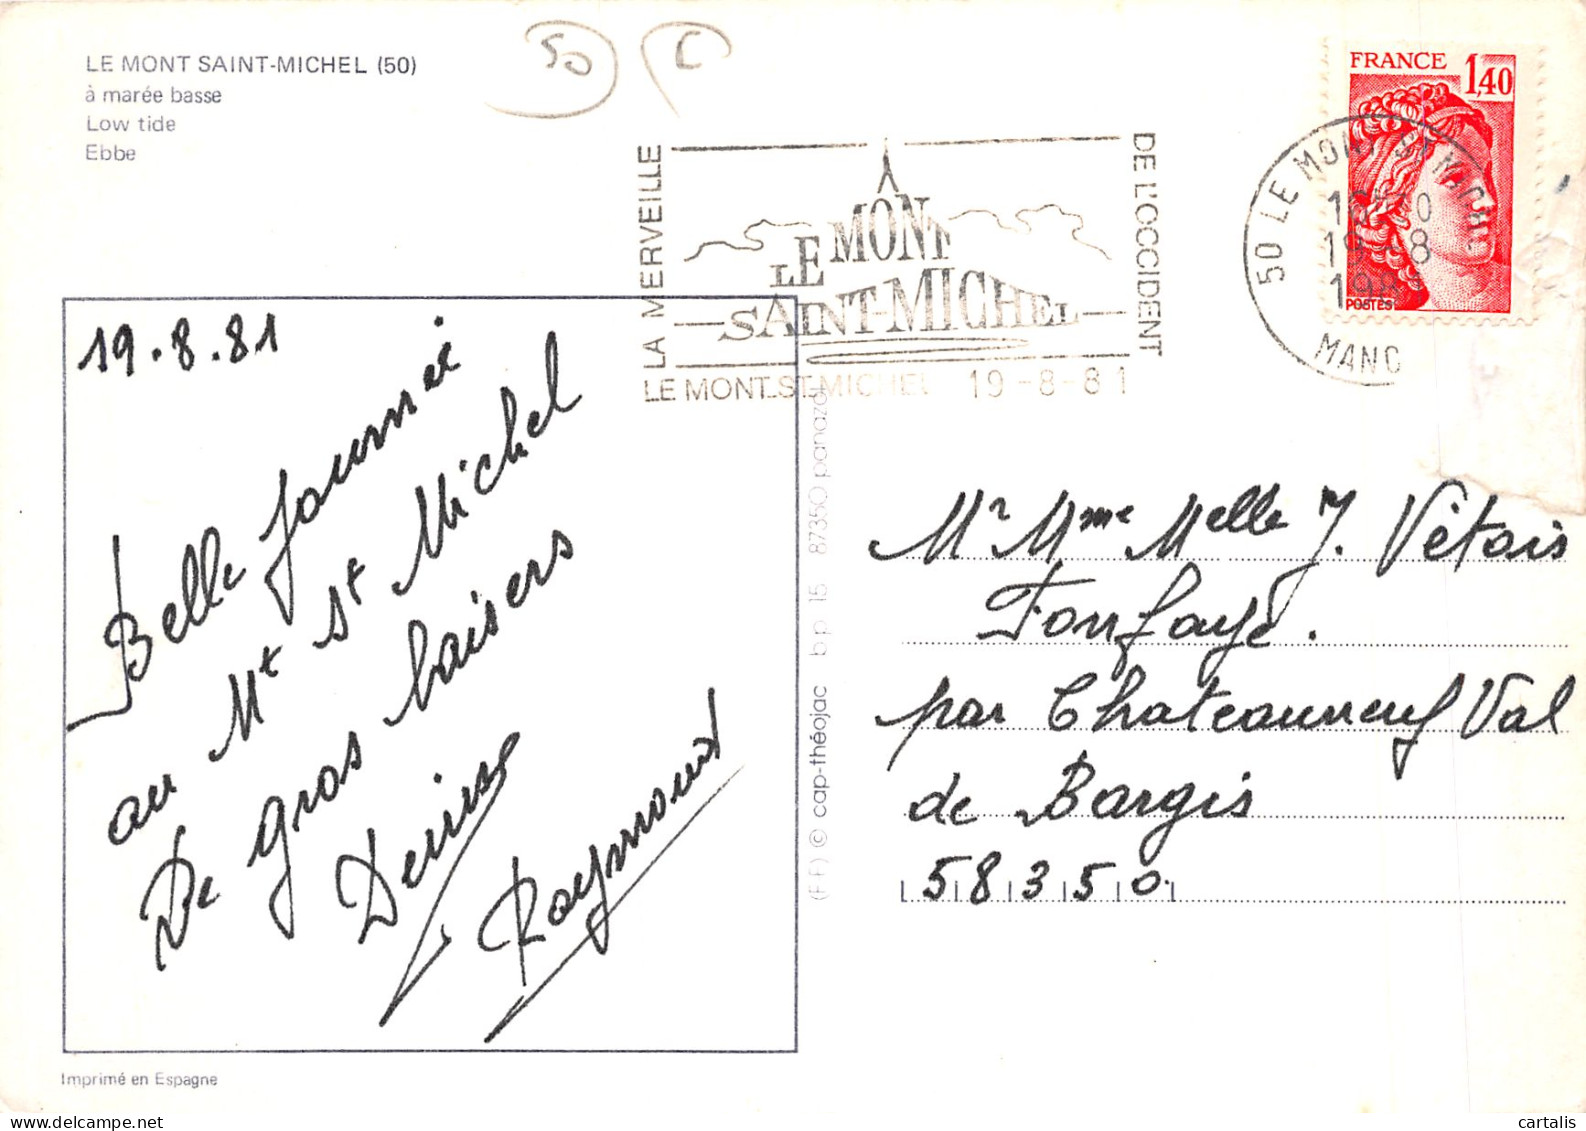 LE MONT SAINT-MICHEL (50)
à marée basse
Low tide
Ebbe
50
C
LA MERVEILLE
LE MONT
SAINT-MICHEL
DE L'OCCIDENT
LE MONT-ST-MICHEL 19-8-81
FRANCE 1,40
POSTES
50 LE MONT ST MICHEL
19-8
MANC
19.8.81
Belle Journée
au Mt St Michel
De gros baisers
Denise
Raymond
(F.F.) © cap-théojac b p 15 87350 panazol
Mr Mme Melle J. Vêtois
Fonfaye.
par Chateauneuf Val
de Bargis
58350
Imprimé en Espagne
cartalis